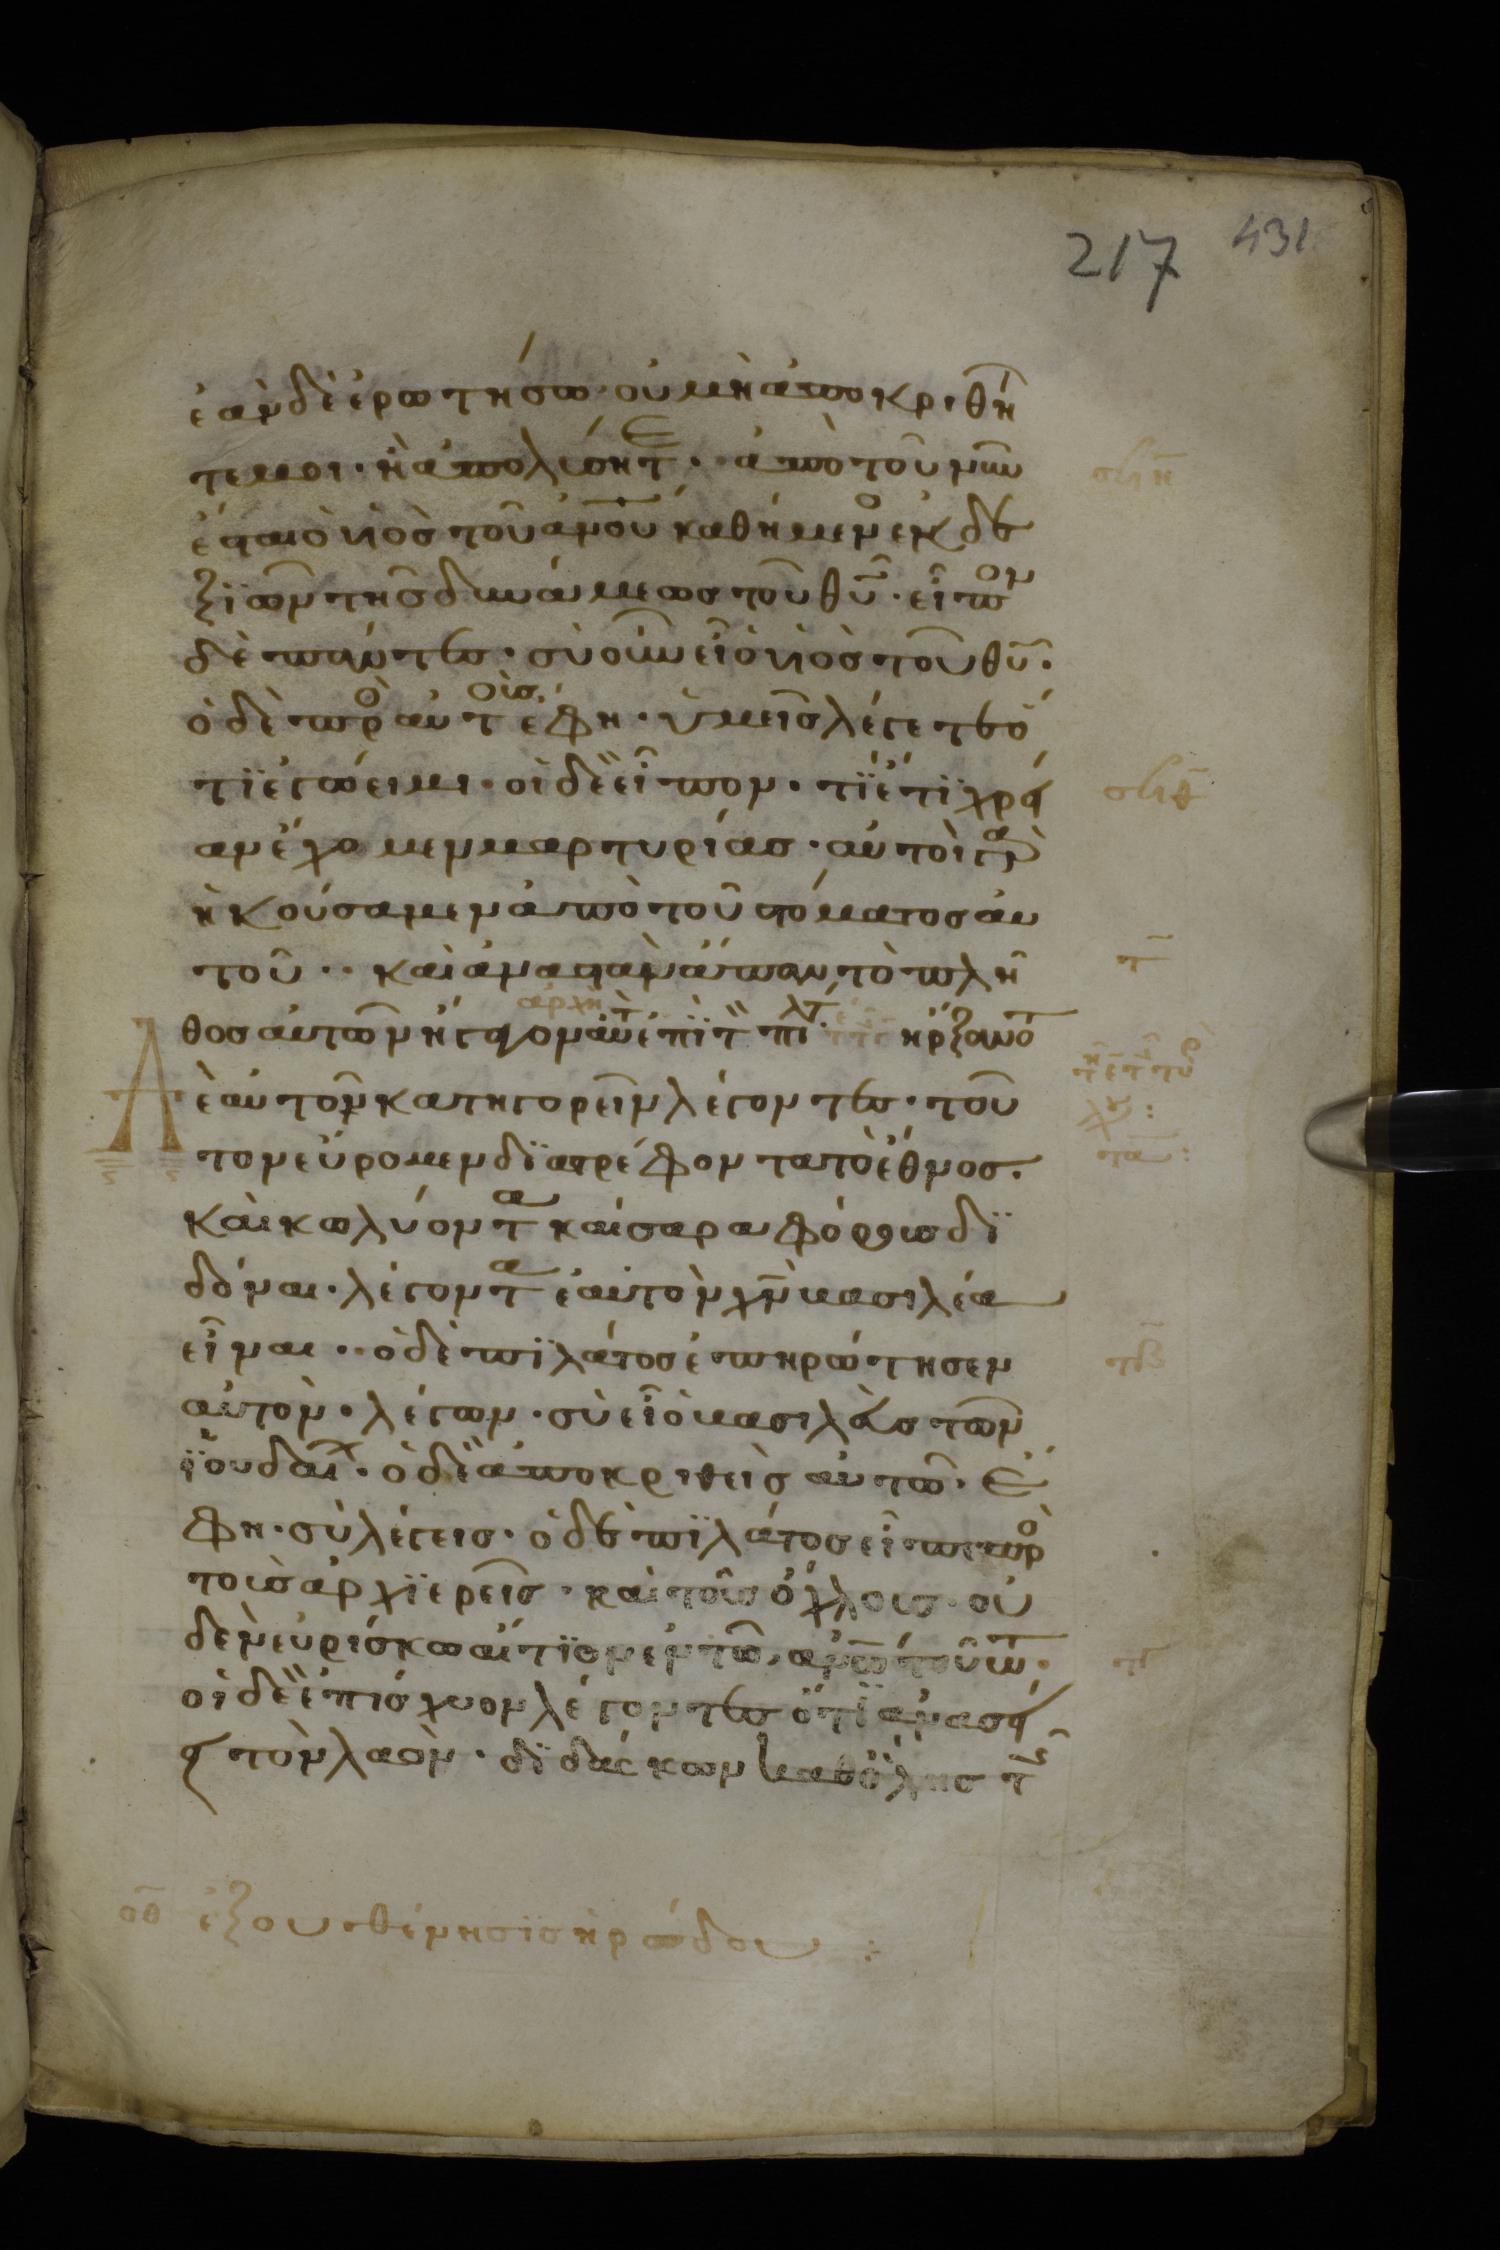 217 431
ἐὰν δὲ ἐρωτήσω· οὐ μὴ ἀποκριθῆ
τέ μοι· ἢ ἀπολύσητε· ἀπὸ τοῦ νῦν
ἔσται ὁ υἱὸς τοῦ ἀνου καθήμενος ἐκ δε
ξιῶν τῆς δυνάμεως τοῦ θυ· εἶπον
δὲ πάντες· σὺ οὖν εἶ ὁ υἱὸς τοῦ θυ·
ὁ δὲ προς αὐτοὺς ἔφη· ὑμεῖς λέγετε ὅ
τϊ ἐγώ εἰμι· οἱ δὲ εἶπον· τΐ ἔτϊ χρεί
αν ἔχομεν μαρτυρίας· αὐτοὶ γὰρ
ἠκούσαμεν ἀπὸ τοῦ στόματος αὐ
τοῦ·· καὶ ἀναστὰν ἅπαν τὸ πλῆ
ἀρχὴ
θος αὐτῶν ἤγαγον αὐτ ἐπϊ τ πιλτ ἤρξαντο
δὲ αὐτοῦ κατηγορεῖν λέγοντες· τοῦ
τον εὕρομεν διαστρέφοντα τὸ ἔθνος·
καὶ κωλύοντα καίσαρι φόρους δϊ
δόναι· λέγοντα ἑαυτὸν χν βασιλέα
εἶναι·· ὁ δὲ πϊλάτος ἐπηρώτησεν
αὐτὸν· λέγων· σὺ εἶ ὁ βασιλεὺς τῶν
ϊουδαι· ὁ δὲ ἀποκριθεὶς αὐτῶ· ἔ
φη· σὺ λέγεις· ὁ δὲ πϊλάτος εἶπε προς
τοὺς ἀρχϊερεῖς· καὶ τοὺς ὄχλους· οὐ
δὲν εὑρίσκω αἴτϊον ἐν τῶ ἀνω τούτω·
οἱ δὲ ἐπίσχυον λέγοντες ὅτϊ ἀνασεί
ει τὸν λαὸν· δϊδάσκων καθ' ὅλης τῆς
οθ ἐξουθένησϊς ἡρώδου